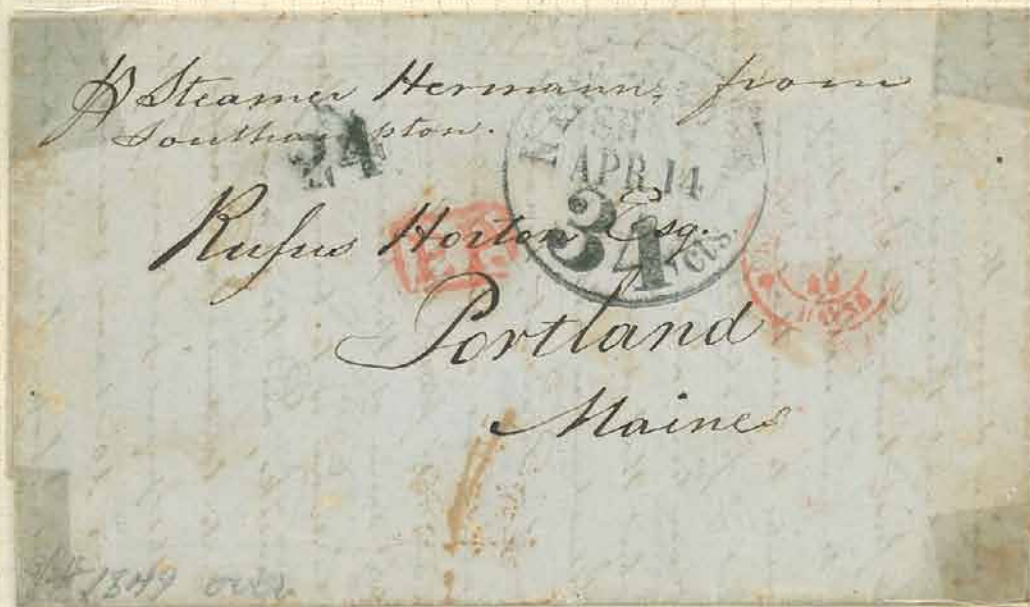 p Steamer Hermann, from
Southampton.
24
NEW
APR 14
34
cts
Rufus Horton Esq.
P.F.
Portland
Maine
1849 over